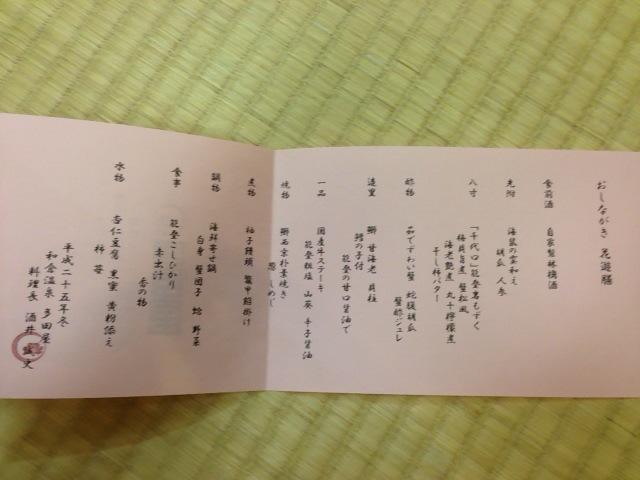 おしながき 花遊膳
食前酒 自家製林檎酒
先附 海鼠の霙和え
胡瓜 人参
八寸 「千代口」能登岩もずく
梅貝旨煮 蟹松風
海老艶煮 丸十檸檬煮
干し柿バター
酢物 茹でずわい蟹 蛇腹胡瓜
蟹酢ジュレ
造里 鰤 甘海老 貝柱
鱈の子付
能登の甘口醤油で
一品 国産牛ステーキ
能登粗塩 山葵 辛子醤油
焼物 鰤西京朴葉焼き
葱 しめじ
煮物 柚子饅頭 鼈甲餡掛け
鍋物 海鮮寄せ鍋
白身 蟹団子 蛤 野菜
食事 能登こしひかり
赤出汁
香の物
水物 杏仁豆腐 黒蜜 黄粉添え
柿 苺
平成二十五年冬
和倉温泉 多田屋
料理長 酒井